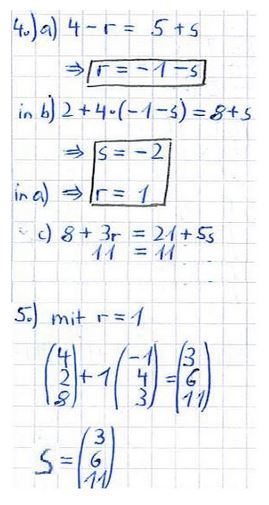 4.) a) 4 - r = 5 + s
⇒ r = -1 - s
in b) 2 + 4·(-1 - s) = 8 + s
⇒ s = -2
in a) ⇒ r = 1
c) 8 + 3r = 21 + 5s
11 = 11
5.) mit r = 1
(4 2 8) + 1 (-1 4 3) = (3 6 11)
S = (3 6 11)